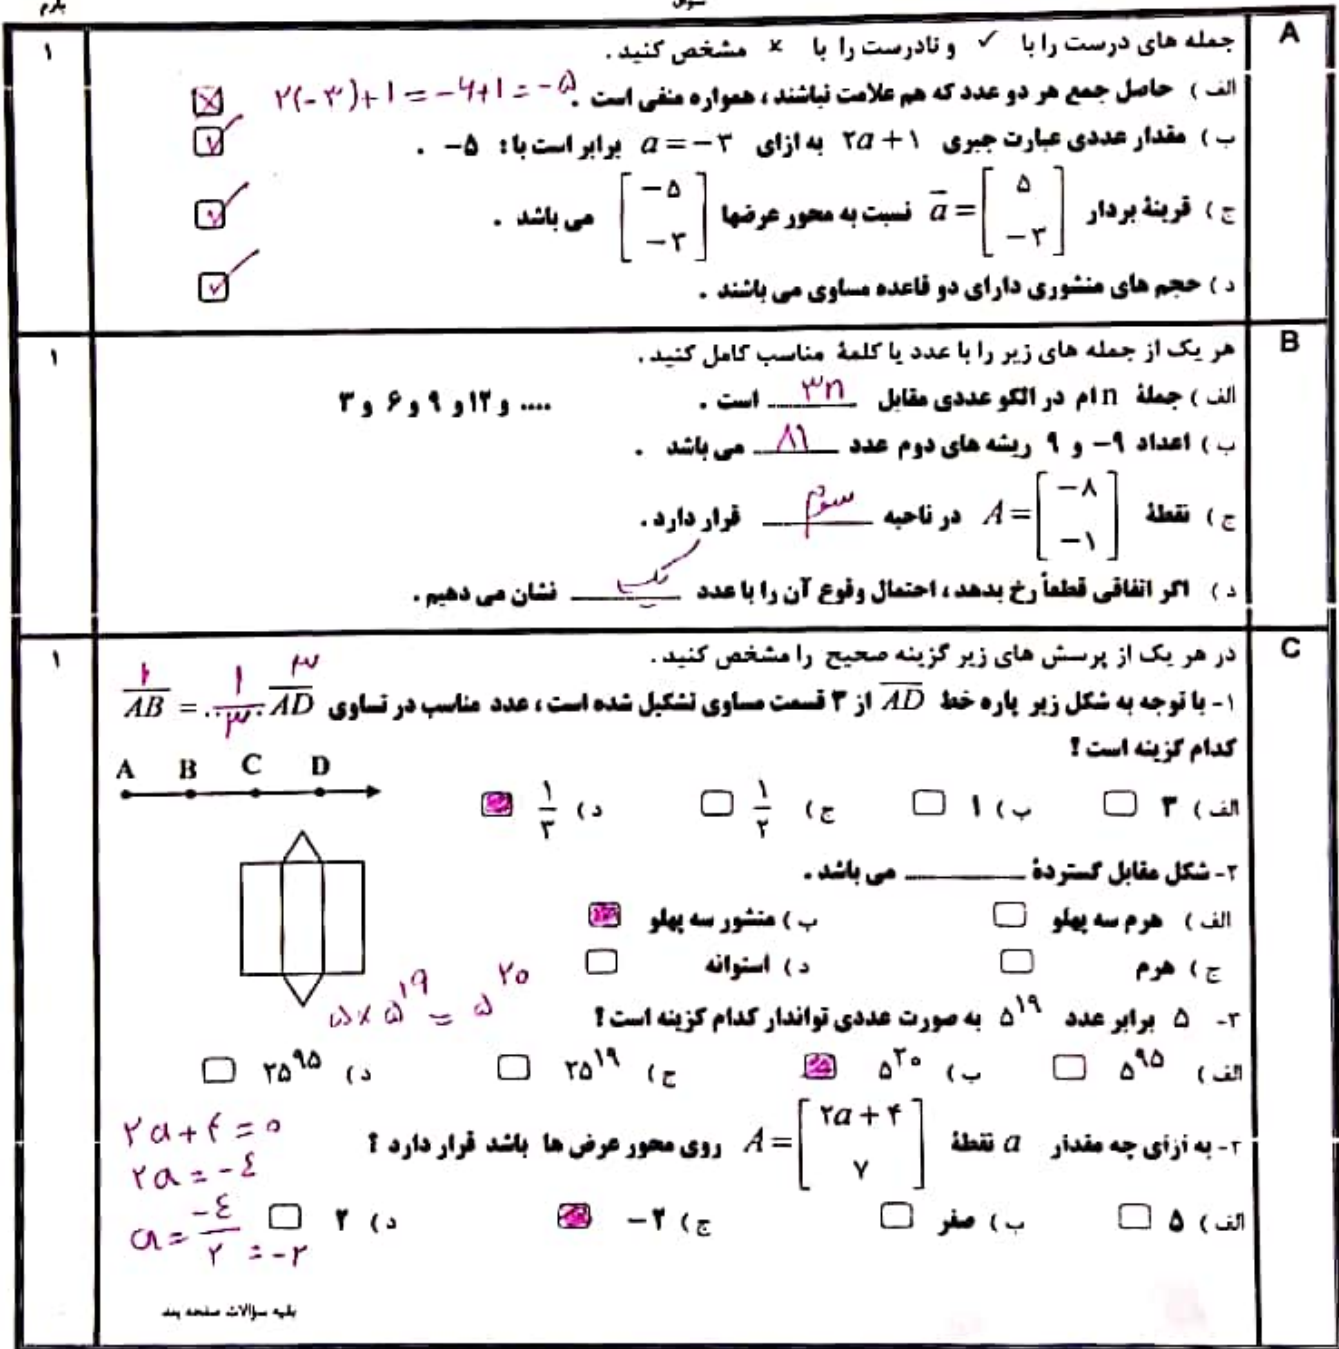 بارم
سوال
A
جمله های درست را با ✓ و نادرست را با × مشخص کنید .
۱
الف ) حاصل جمع هر دو عدد که هم علامت نباشند ، همواره منفی است . ۲(-۳)+۱=-۶+۱=-۵ ☒
ب ) مقدار عددی عبارت جبری ۲a+۱ به ازای a=-۳ برابر است با : ۵- . ☑
ج ) قرینۀ بردار a = [ ۵ -۳ ] نسبت به محور عرضها [ -۵ -۳ ] می باشد . ☑
د ) حجم های منشوری دارای دو قاعده مساوی می باشند . ☑
B
هر یک از جمله های زیر را با عدد یا کلمۀ مناسب کامل کنید .
۱
الف ) جملۀ n ام در الگو عددی مقابل ۳n است . .... و ۱۲ و ۹ و ۶ و ۳
ب ) اعداد ۹- و ۹ ریشه های دوم عدد ۸۱ می باشد .
ج ) نقطۀ A = [ -۸ -۱ ] در ناحیه سوم قرار دارد .
د ) اگر اتفاقی قطعاً رخ بدهد ، احتمال وقوع آن را با عدد یک نشان می دهیم .
C
در هر یک از پرسش های زیر گزینه صحیح را مشخص کنید .
۱
۱- با توجه به شکل زیر پاره خط AD از ۳ قسمت مساوی تشکیل شده است ، عدد مناسب در تساوی AB = ۱/۳ AD ۱ ۳
کدام گزینه است ؟
A B C D
الف ) ۳ ب ) ۱ ج ) ۱/۲ د ) ۱/۳
۲- شکل مقابل گستردۀ ــــــــ می باشد .
الف ) هرم سه پهلو ب ) منشور سه پهلو
ج ) هرم د ) استوانه
۵×۵^۱۹ = ۵^۲۰
۳- ۵ برابر عدد ۵^۱۹ به صورت عددی تواندار کدام گزینه است ؟
الف ) ۵^۹۵ ب ) ۵^۲۰ ج ) ۲۵^۱۹ د ) ۲۵^۹۵
۴- به ازای چه مقدار a نقطۀ A = [ ۲a+۴ ۷ ] روی محور عرض ها باشد قرار دارد ؟
۲a+۴=۰
۲a=-۴
a=-۴/۲=-۲
الف ) ۵ ب ) صفر ج ) ۲- د ) ۲
بقیه سؤالات صفحه بعد